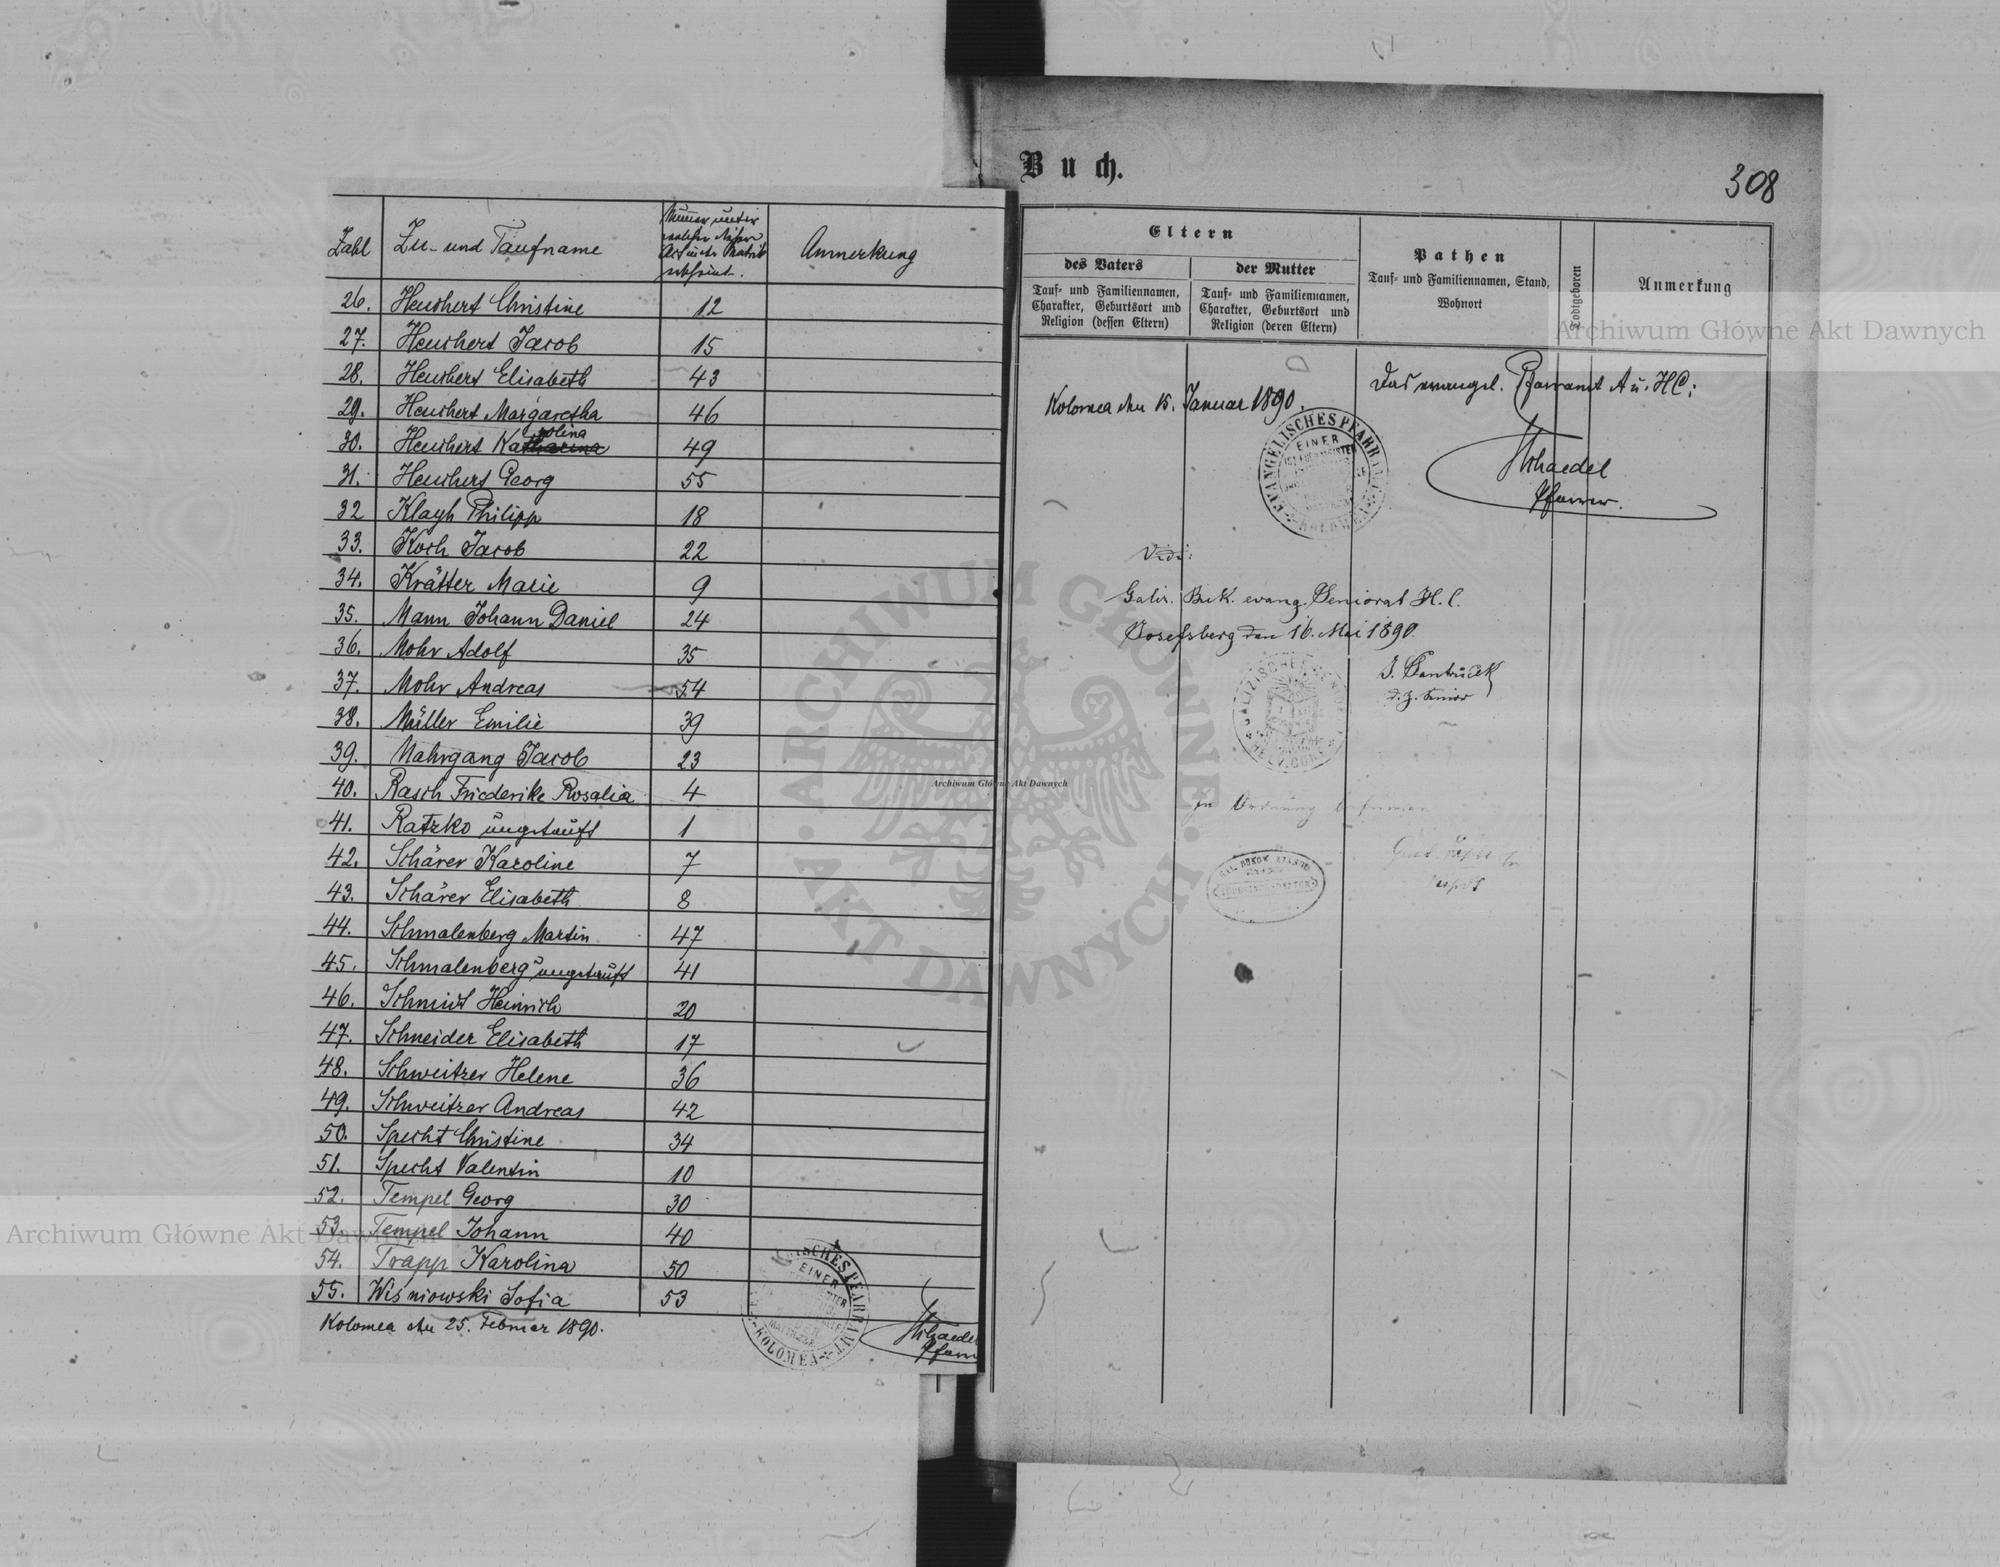 Zahl Zu- und Taufname Nummer unter welcher dieser Act in der Matrik erscheint. Anmerkung
26. Heuchert Christine 12
27. Heuchert Jacob 15
28. Heuchert Elisabeth 43
29. Heuchert Margaretha 46
30. Heuchert Karolina 49
31. Heuchert Georg 55
32 Klayh Philipp 18
33. Koch Jacob 22
34. Krätter Marie 9
35. Mann Johann Daniel 24
36. Mohr Adolf 35
37. Mohr Andreas 54
38. Müller Emilie 39
39. Nahrgang Jacob 23
40. Rasch Friederike Rosalia 4
41. Ratzko ungetauft 1
42. Schärer Karoline 7
43. Schärer Elisabeth 8
44. Schmalenberg Martin 47
45. Schmalenberg ungetauft 41
46. Schmidt Heinrich 20
47. Schneider Elisabeth 17
48. Schweitzer Helene 36
49. Schweitzer Andreas 42
50. Specht Christine 34
51. Specht Valentin 10
52. Tempel Georg 30
53. Tempel Johann 40
54. Trapp Karolina 50
55. Wiśniowski Sofia 53
Kolomea den 25. Februar 1890.
EINER
KOLOMEA
Schaedel
Pfarrer
Buch.
308
Eltern
des Vaters
der Mutter
Tauf- und Familiennamen,
Charakter, Geburtsort und
Religion (dessen Eltern)
Tauf- und Familiennamen,
Charakter, Geburtsort und
Religion (deren Eltern)
Pathen
Tauf- und Familiennamen, Stand,
Wohnort
Todtgeboren
Anmerkung
Kolomea den 15. Januar 1890.
Das evangel. Pfarramt A u. HC:
EVANGELISCHES PFARRAMT
EINER
KOLOMEA
Schaedel
Pfarrer.
Vidi:
Galiz. Buk. evang. Seniorat H. C.
Josefsberg den 16. Mai 1890.
d. z. Senior
in Ordnung befunden
Archiwum Główne Akt Dawnych
Archiwum Główne Akt Dawnych
Archiwum Główne Akt Dawnych
ARCHIWUM GŁÓWNE AKT DAWNYCH